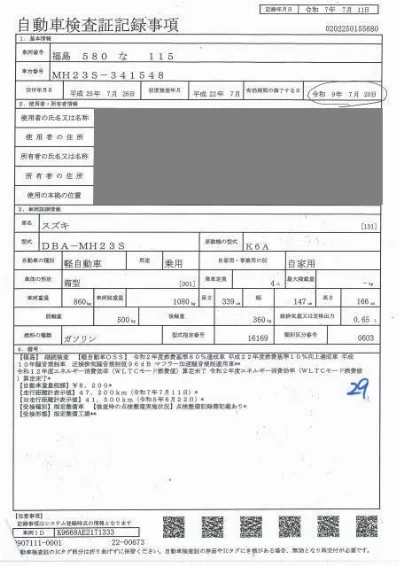 記録年月日 令和 7年 7月 11日
自動車検査証記録事項
0202250155680
1. 基本情報
車両番号 福島 580 な 115
車台番号 MH23S-341548
交付年月日 平成 25年 7月 26日 初度検査年月 平成 22年 7月 有効期間の満了する日 令和 9年 7月 20日
2. 使用者・所有者情報
使用者の氏名又は名称
使用者の住所
所有者の氏名又は名称
所有者の住所
使用の本拠の位置
3. 車両詳細情報
車名 スズキ [131]
型式 DBA-MH23S 原動機の型式 K6A
自動車の種別 軽自動車 用途 乗用 自家用・事業用の別 自家用
車体の形状 箱型 [001] 乗車定員 4人 最大積載量 -kg
車両重量 860kg 車両総重量 1080kg 長さ 339cm 幅 147cm 高さ 166cm
前軸重 500kg 後軸重 360kg 総排気量又は定格出力 0.65L
燃料の種類 ガソリン 型式指定番号 16169 類別区分番号 0603
4. 備考
【福島】 継続検査 【軽自動車OSS】 令和2年度燃費基準80%達成車 平成22年度燃費基準10%向上達成車 平成
10年騒音規制車 近接排気騒音規制値96dB マフラー加速騒音規制適用車**
令和12年度エネルギー消費効率(WLTCモード燃費値)算定未了 令和2年度エネルギー消費効率(WLTCモード燃費値
)算定未了*
[自動車重量税額]¥8,200*
[走行距離計表示値]47,200km(令和7年7月11日)*
[旧走行距離計表示値]41,500km(令和5年6月22日)*
【受検種別】指定整備車 【検査時の点検整備実施状況】点検整備記録簿記載あり*
【受検形態】指定整備工場**
29
【注意事項】
記録事項はシステム登録時点の情報となります
車両ID K9668AE2171333
907111-0001 22-00673
自動車検査証のICタグ部分は折り曲げずに保管ください。自動車検査証の券面やICタグにき損がある場合、無効となり再交付が必要です。